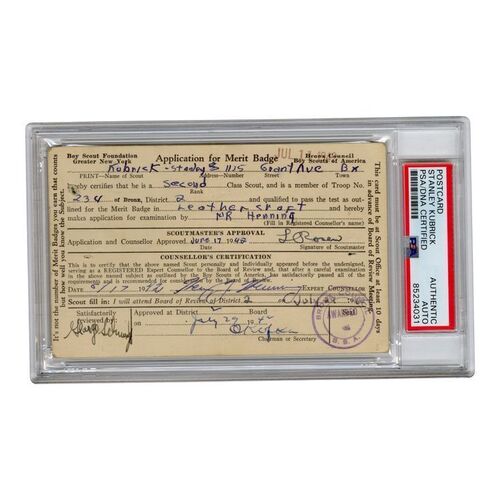 JUL
Boy Scout Foundation Application for Merit Badge Bronx Council
Greater New York Boy Scouts of America
Kubrick - Stanley 1135 Grant Ave Bx
PRINT—Name of Scout Address—Number Street Town
hereby certifies that he is a Second Class Scout, and is a member of Troop No.
Rank
234 of Bronx, District 2 and qualified to pass the test as out-
lined for the Merit Badge in Leathercraft
to MR Henning
(Fill in Registered Counsellor's name)
SCOUTMASTER'S APPROVAL
Application and Counsellor Approved June 17 1942 L Rosen
Date Signature of Scoutmaster
COUNSELLOR'S CERTIFICATION
This is to certify that the above named Scout personally and individually appeared before the undersigned,
serving as a REGISTERED Expert Counsellor to the Board of Review and that, after a careful examination
of the above mentioned subject, as required by the Boy Scouts of America, has satisfactorily passed the
Date EXPERT COUNSELLOR
Scout fill in: I will attend Board of Review District 2
Satisfactorily Approved at District 2 Board
Reviewed by on July 29 1942
Chairman or Secretary
AWARDED
B. S. A.
It's not the number of Merit Badges you earn that counts
but how much you know of the Subject.
This card must be at Scout Office at least 10 days
in advance of Board of Review Meeting.
POSTCARD
STANLEY KUBRICK
PSA/DNA CERTIFIED
PSA
AUTHENTIC
AUTO
85234031